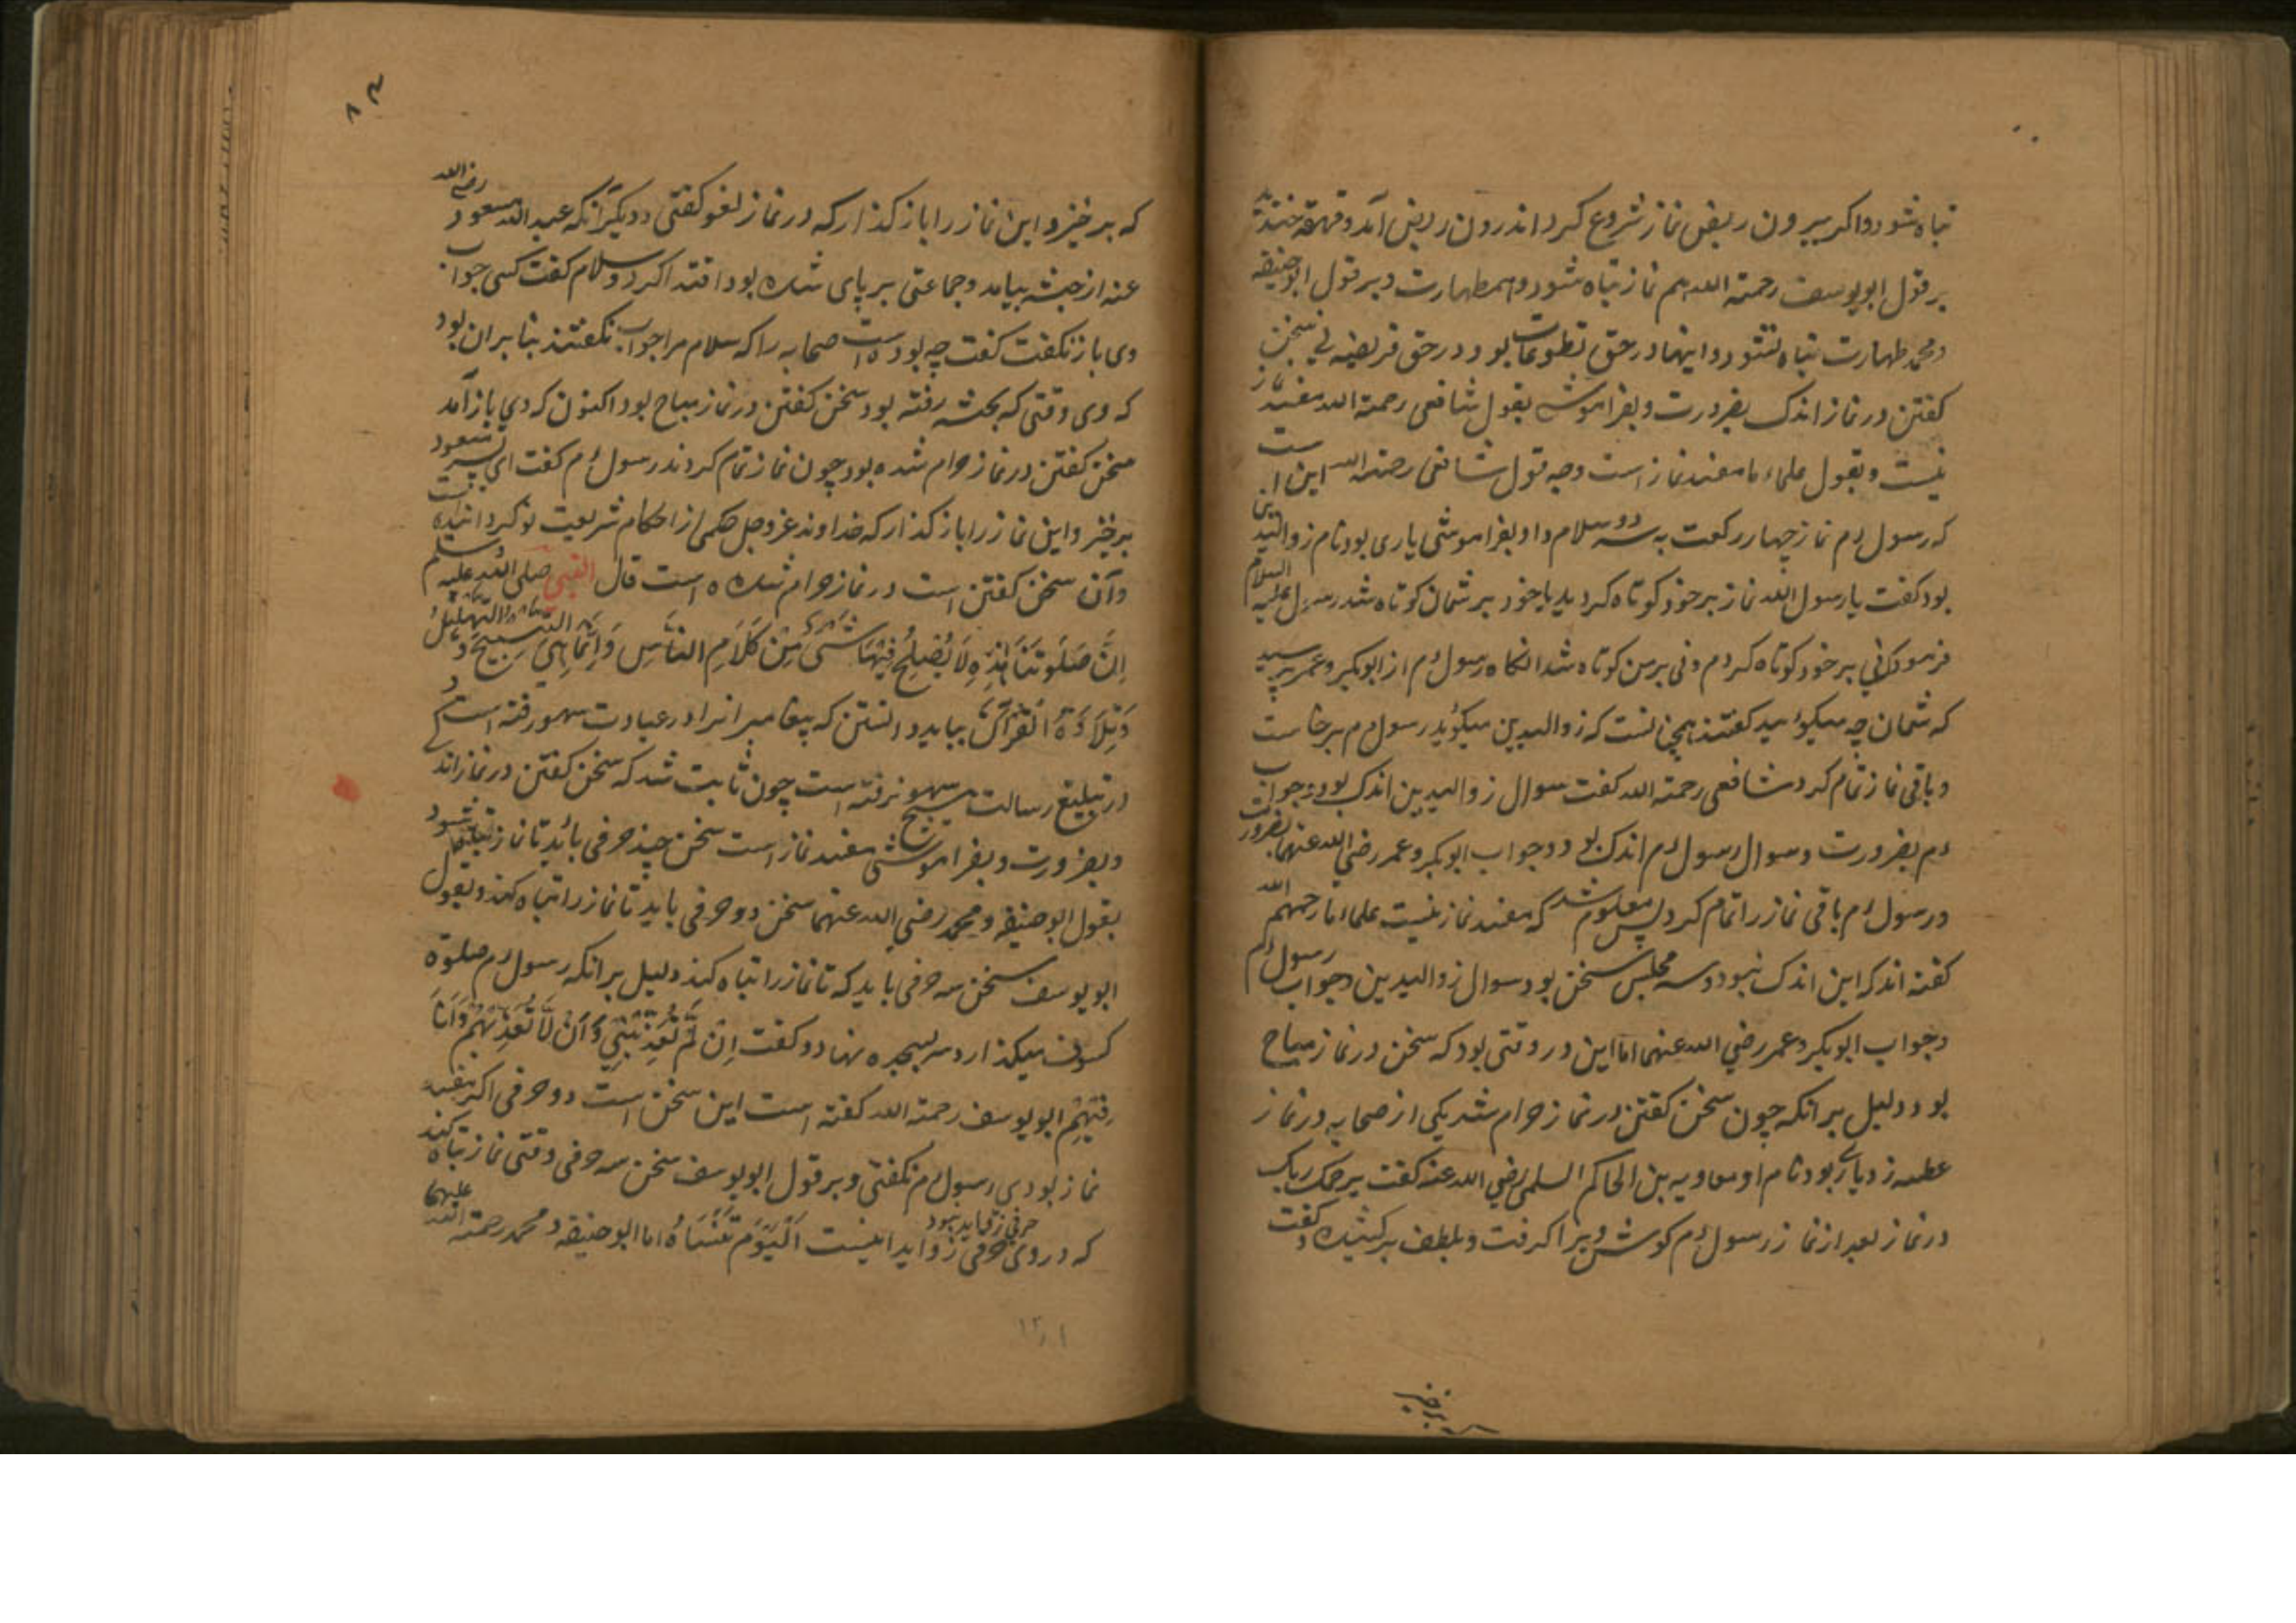 تباه شود و اکر بیرون ربض نماز شروع کرد اندرون ربض آمد و قهقهه خندید
بر قول ابو یوسف رحمة الله هم نماز تباه شود و هم طهارت و بر قول ابو حنیفه
و محمد طهارت تباه نشود و اینها در حق تطوعات بود و در حق فریضه نی سخن
کفتن در نماز اندک بضرورت و بفراموشی بقول شافعی رحمة الله مفسد نماز
نیست و بقول علماء ما مفسد نماز است وجه قول شافعی رحمة الله این است
که رسول م نماز چهار رکعت به سلام داد بفراموشی یاری بود نام ذو الیدین
بود کفت یا رسول الله نماز بر خود کوتاه کردید یا خود بر شمان کوتاه شد رسول علیه السلام
فرمود نی بر خود کوتاه کردم و نی بر من کوتاه شد انکاه رسول م از ابوبکر و عمر پرسید
که شمان چه میکوئید کفتند همچنانست که ذو الیدین میکوید رسول م برخاست
و باقی نماز تمام کرد شافعی رحمة الله کفت سوال ذو الیدین اندک بود و جواب
م بضرورت و سوال رسول م اندک بود و جواب ابو بکر و عمر رضی الله عنهما بضرورت
و رسول م باقی نماز را تمام کرد پس معلوم شد که مفسد نماز نیست علماء ما رحمهم الله
کفته اند که این اندک نبود و سه مجلس سخن بود سوال ذو الیدین و جواب رسول م
و جواب ابو بکر و عمر رضی الله عنهما اما این در وقتی بود که سخن در نماز مباح
بود و دلیل بر انکه چون سخن کفتن در نماز حرام شد یکی از صحابه در نماز
عطسه زد یاری بود نام او معاویه بن الحاکم السلمی رضی الله عنه کفت یرحمک ربک
در نماز بعد از نماز رسول م کوش ویرا کرفت و بلطف برکشید و کفت
برخیز
که برخیز و این نماز را باز کذار که در نماز لغو کفتی و دیکر انکه عبد الله مسعود رضی الله
عنه از حبشه بیامد و جماعتی بر پای شده بود اقتدا کرد و سلام کفت کسی جواب
وی باز نکفت کفت چه بوده است صحابه را که سلام مرا جواب نکفتند بنا بر ان بود
که وی وقتی که بحبشه رفته بود سخن کفتن در نماز مباح بود اکنون که وی باز آمد
سخن کفتن در نماز حرام شده بود چون نماز تمام کردند رسول م کفت ای پسر مسعود
برخیز و این نماز را باز کذار که خداوند عز و جل حکمی از احکام شریعت نو کردانیده است
و آن سخن کفتن است در نماز حرام شده است قال النبی صلی الله علیه وسلم
اِنَّ صَلَوتَنَا هٰذِهِ لَا یُصْلِحُ فِیْهَا شَیْءٌ مِنْ کَلَامِ النَّاسِ وَاِنَّمَا هِیَ التَّسْبِیْحُ وَالتَّهْلِیْلُ
وَتِلَاوَةُ الْقُرْآنِ بباید دانستن که پیغامبرانرا در عبادت سهو رفته است
در تبلیغ رسالت هیچ سهو نرفته است چون ثابت شد که سخن کفتن در نماز اندک
و بضرورت و بفراموشی مفسد نماز است سخن چند حرفی باید تا نماز تباه شود
بقول ابو حنیفه و محمد رضی الله عنهما سخن دو حرفی باید تا نماز را تباه کند و بقول
ابو یوسف سخن سه حرفی باید که تا نماز را تباه کند دلیل بر انکه رسول م صلوة
کسوف میکذارد سر بسجده نهاد و کفت اِنْ لَّمْ تُعَذِّبْنِی وَاَنْ لَّا تُعَذِّبَهُمْ وَاَنَا
فِیْهِمْ ابو یوسف رحمة الله کفته است این سخن است دو حرفی اکر مفسد
نماز بودی رسول م نکفتی و بر قول ابو یوسف سخن سه حرفی وقتی نماز تباه کند
که در وی حرفی زواید نیست اَلْیَوْمَ تَنْسَاهُ اما ابو حنیفه و محمد رحمة الله علیهما